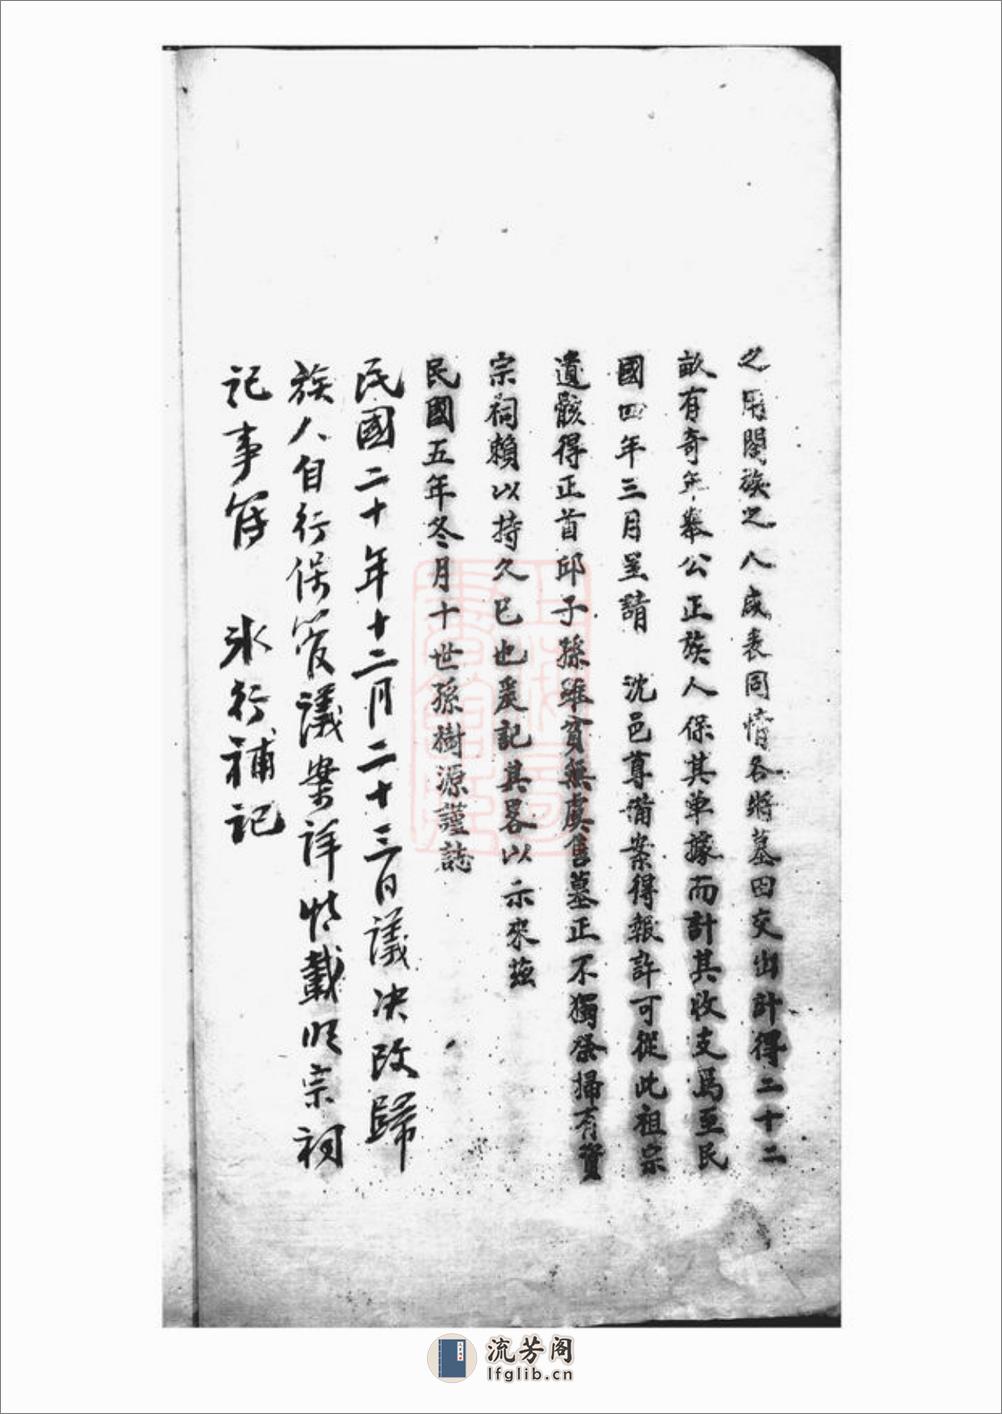 之用閤族之人咸表同情各將墓田交出計得二十二
畝有奇年舉公正族人保其單據而計其收支焉至民
國四年三月呈請 沈邑尊備案得報許可從此祖宗
遺骸得正首邱子孫雖貧無虞售墓正不獨祭掃有資
宗祠賴以持久已也爰記其畧以示來茲
民國五年冬月十世孫樹源謹誌
民國二十年十二月二十三日議决改歸
族人自行保管議案詳情載明宗祠
記事簿 氷行補記
流芳阁
lfglib.cn